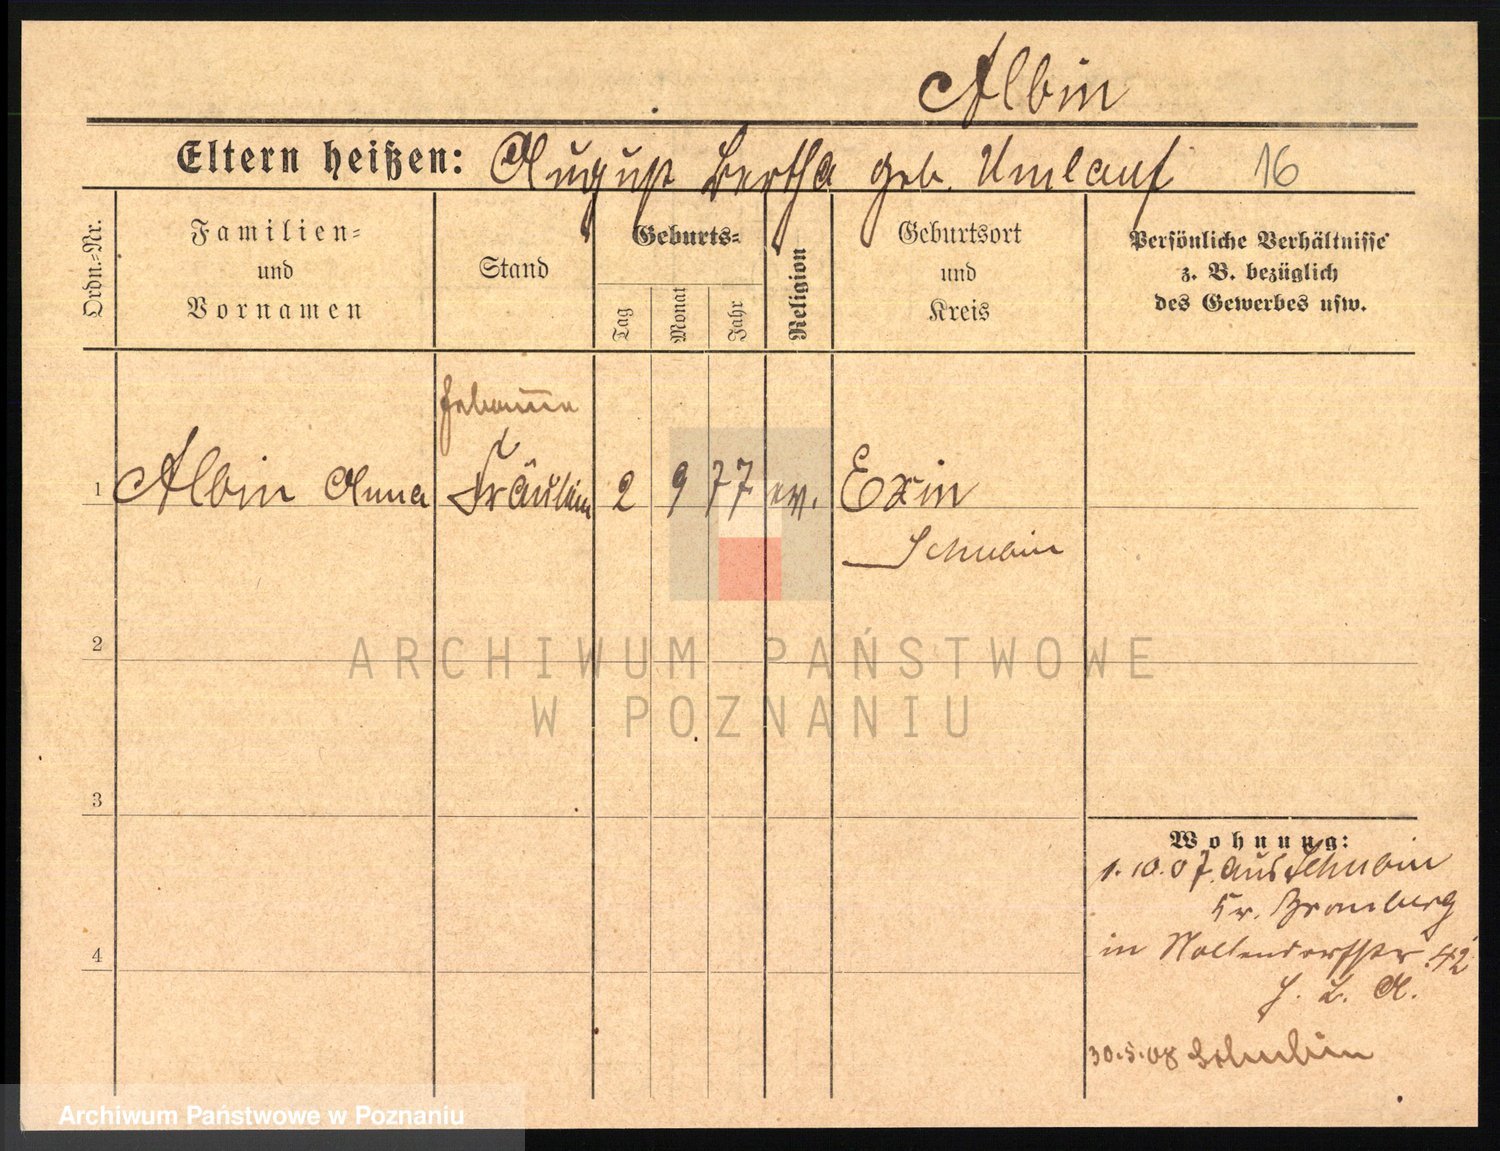 Albin
Eltern heißen: August Bertha geb. Umlauf 16
Ordn.-Nr.
Familien-
und
Vornamen
Stand
Geburts-
Tag
Monat
Jahr
Religion
Geburtsort
und
Kreis
Persönliche Verhältnisse
z. B. bezüglich
des Gewerbes usw.
Hebamme
1 Albin Anna Fräulein 2 9 77 ev. Exin
Schubin
2
ARCHIWUM PAŃSTWOWE
W POZNANIU
3
4
Wohnung:
1.10.07. aus Schubin
Kr. Bromberg
in Nollendorfstr. 42
30.5.08 Schubin
Archiwum Państwowe w Poznaniu